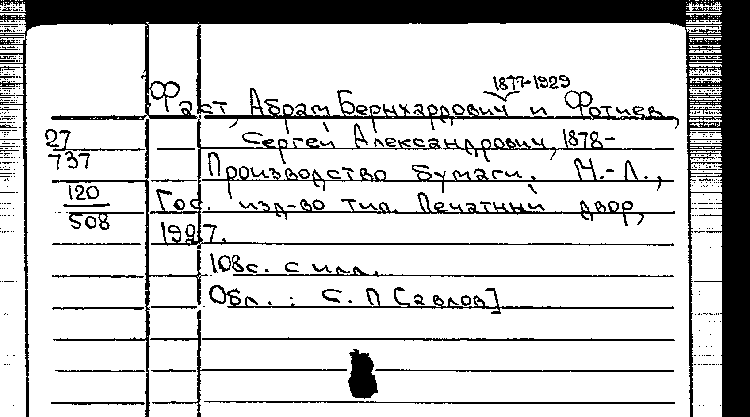 1877-1929
Фаст, Абрам Бернхардович и Фотиев,
27 Сергей Александрович, 1878-
737 Производство бумаги. М.-Л.,
120 Гос. изд-во тип. Печатный двор,
508 1927.
108с. с илл.
Обл.: С. П[авлов]